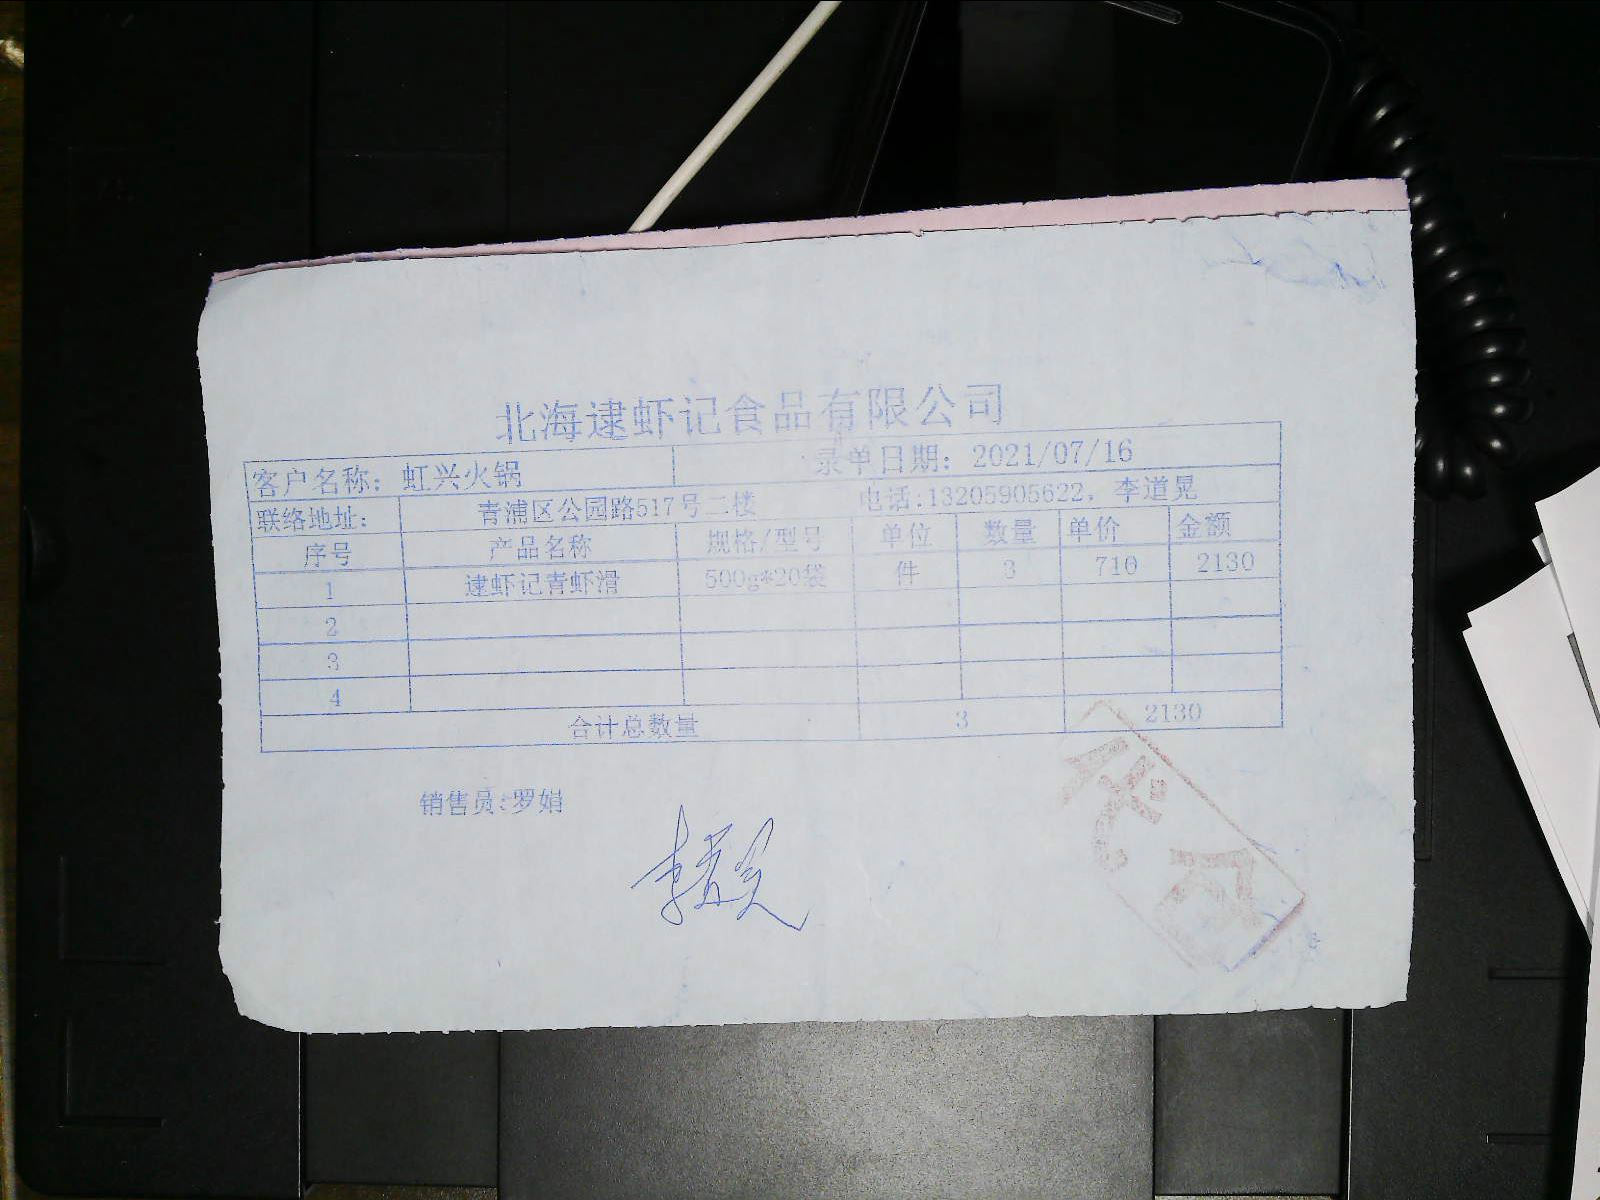 北海逮虾记食品有限公司
客户名称：虹兴火锅 录单日期：2021/07/16
联络地址： 青浦区公园路517号二楼 电话:13205905622，李道晃
序号 产品名称 规格/型号 单位 数量 单价 金额
1 逮虾记青虾滑 500g*20袋 件 3 710 2130
2
3
4
合计总数量 3 2130
销售员:罗娟